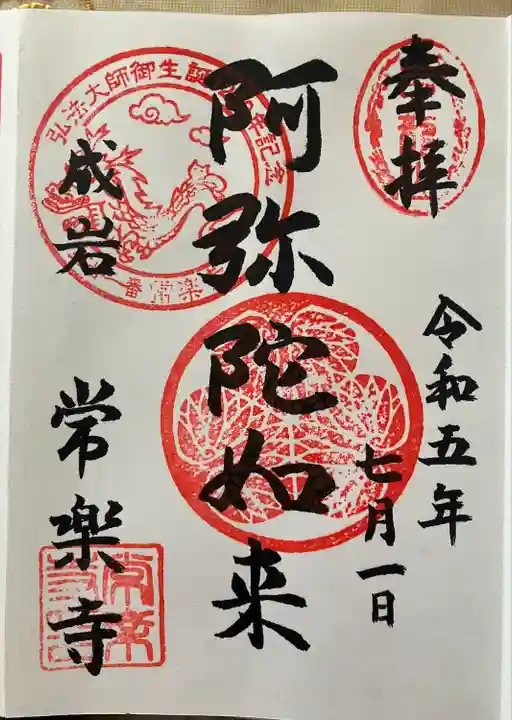 奉拝
令和五年
七月一日
阿弥陀如来
成岩
常楽寺
弘法大師御生誕
年記念
番常楽